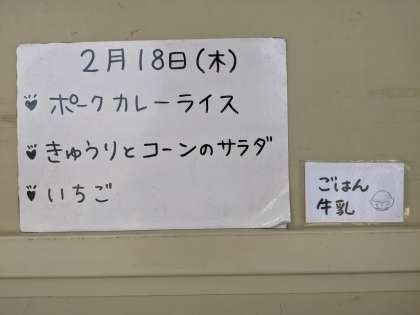 2月18日(木)
ポークカレーライス
きゅうりとコーンのサラダ
いちご
ごはん
牛乳